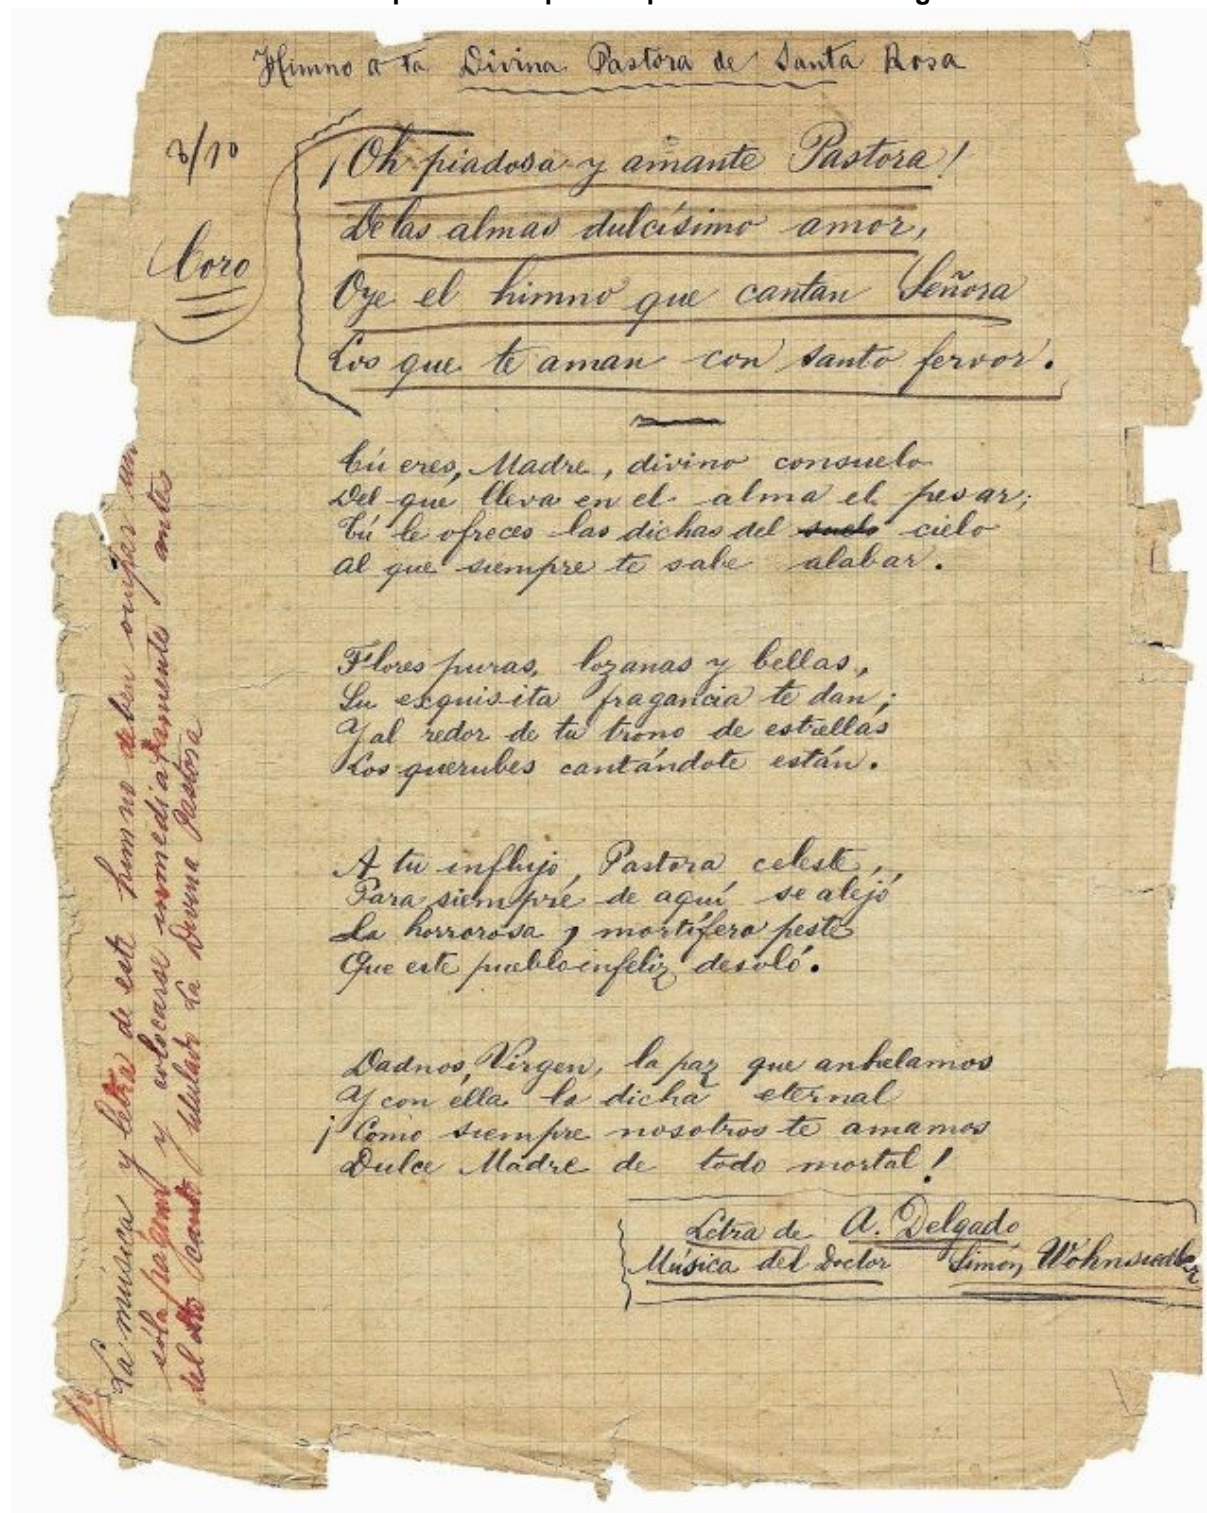 Himno a la Divina Pastora de Santa Rosa
3/10
Coro
¡Oh piadosa y amante Pastora!
De las almas dulcísimo amor,
Oye el himno que cantan Señora
Los que te aman con santo fervor.
Tú eres, Madre, divino consuelo
Del que lleva en el alma el pesar;
Tú le ofreces las dichas del suelo cielo
Al que siempre te sabe alabar.
Flores puras, lozanas y bellas,
Su exquisita fragancia te dan;
Y al redor de tu trono de estrellas
Los querubes cantándote están.
A tu influjo, Pastora celeste,
Para siempre de aquí se alejó
La horrorosa y mortífera peste
Que este pueblo infeliz desoló.
Dadnos, Virgen, la paz que anhelamos
Y con ella la dicha eternal
¡Como siempre nosotros te amamos
Dulce Madre de todo mortal!
Letra de A. Delgado
Música del Doctor Simón Wohnsiedler
La música y letra de este himno deben ocupar una
sóla pagina y colocarse inmediatamente antes
del canto titulado La Divina Pastora